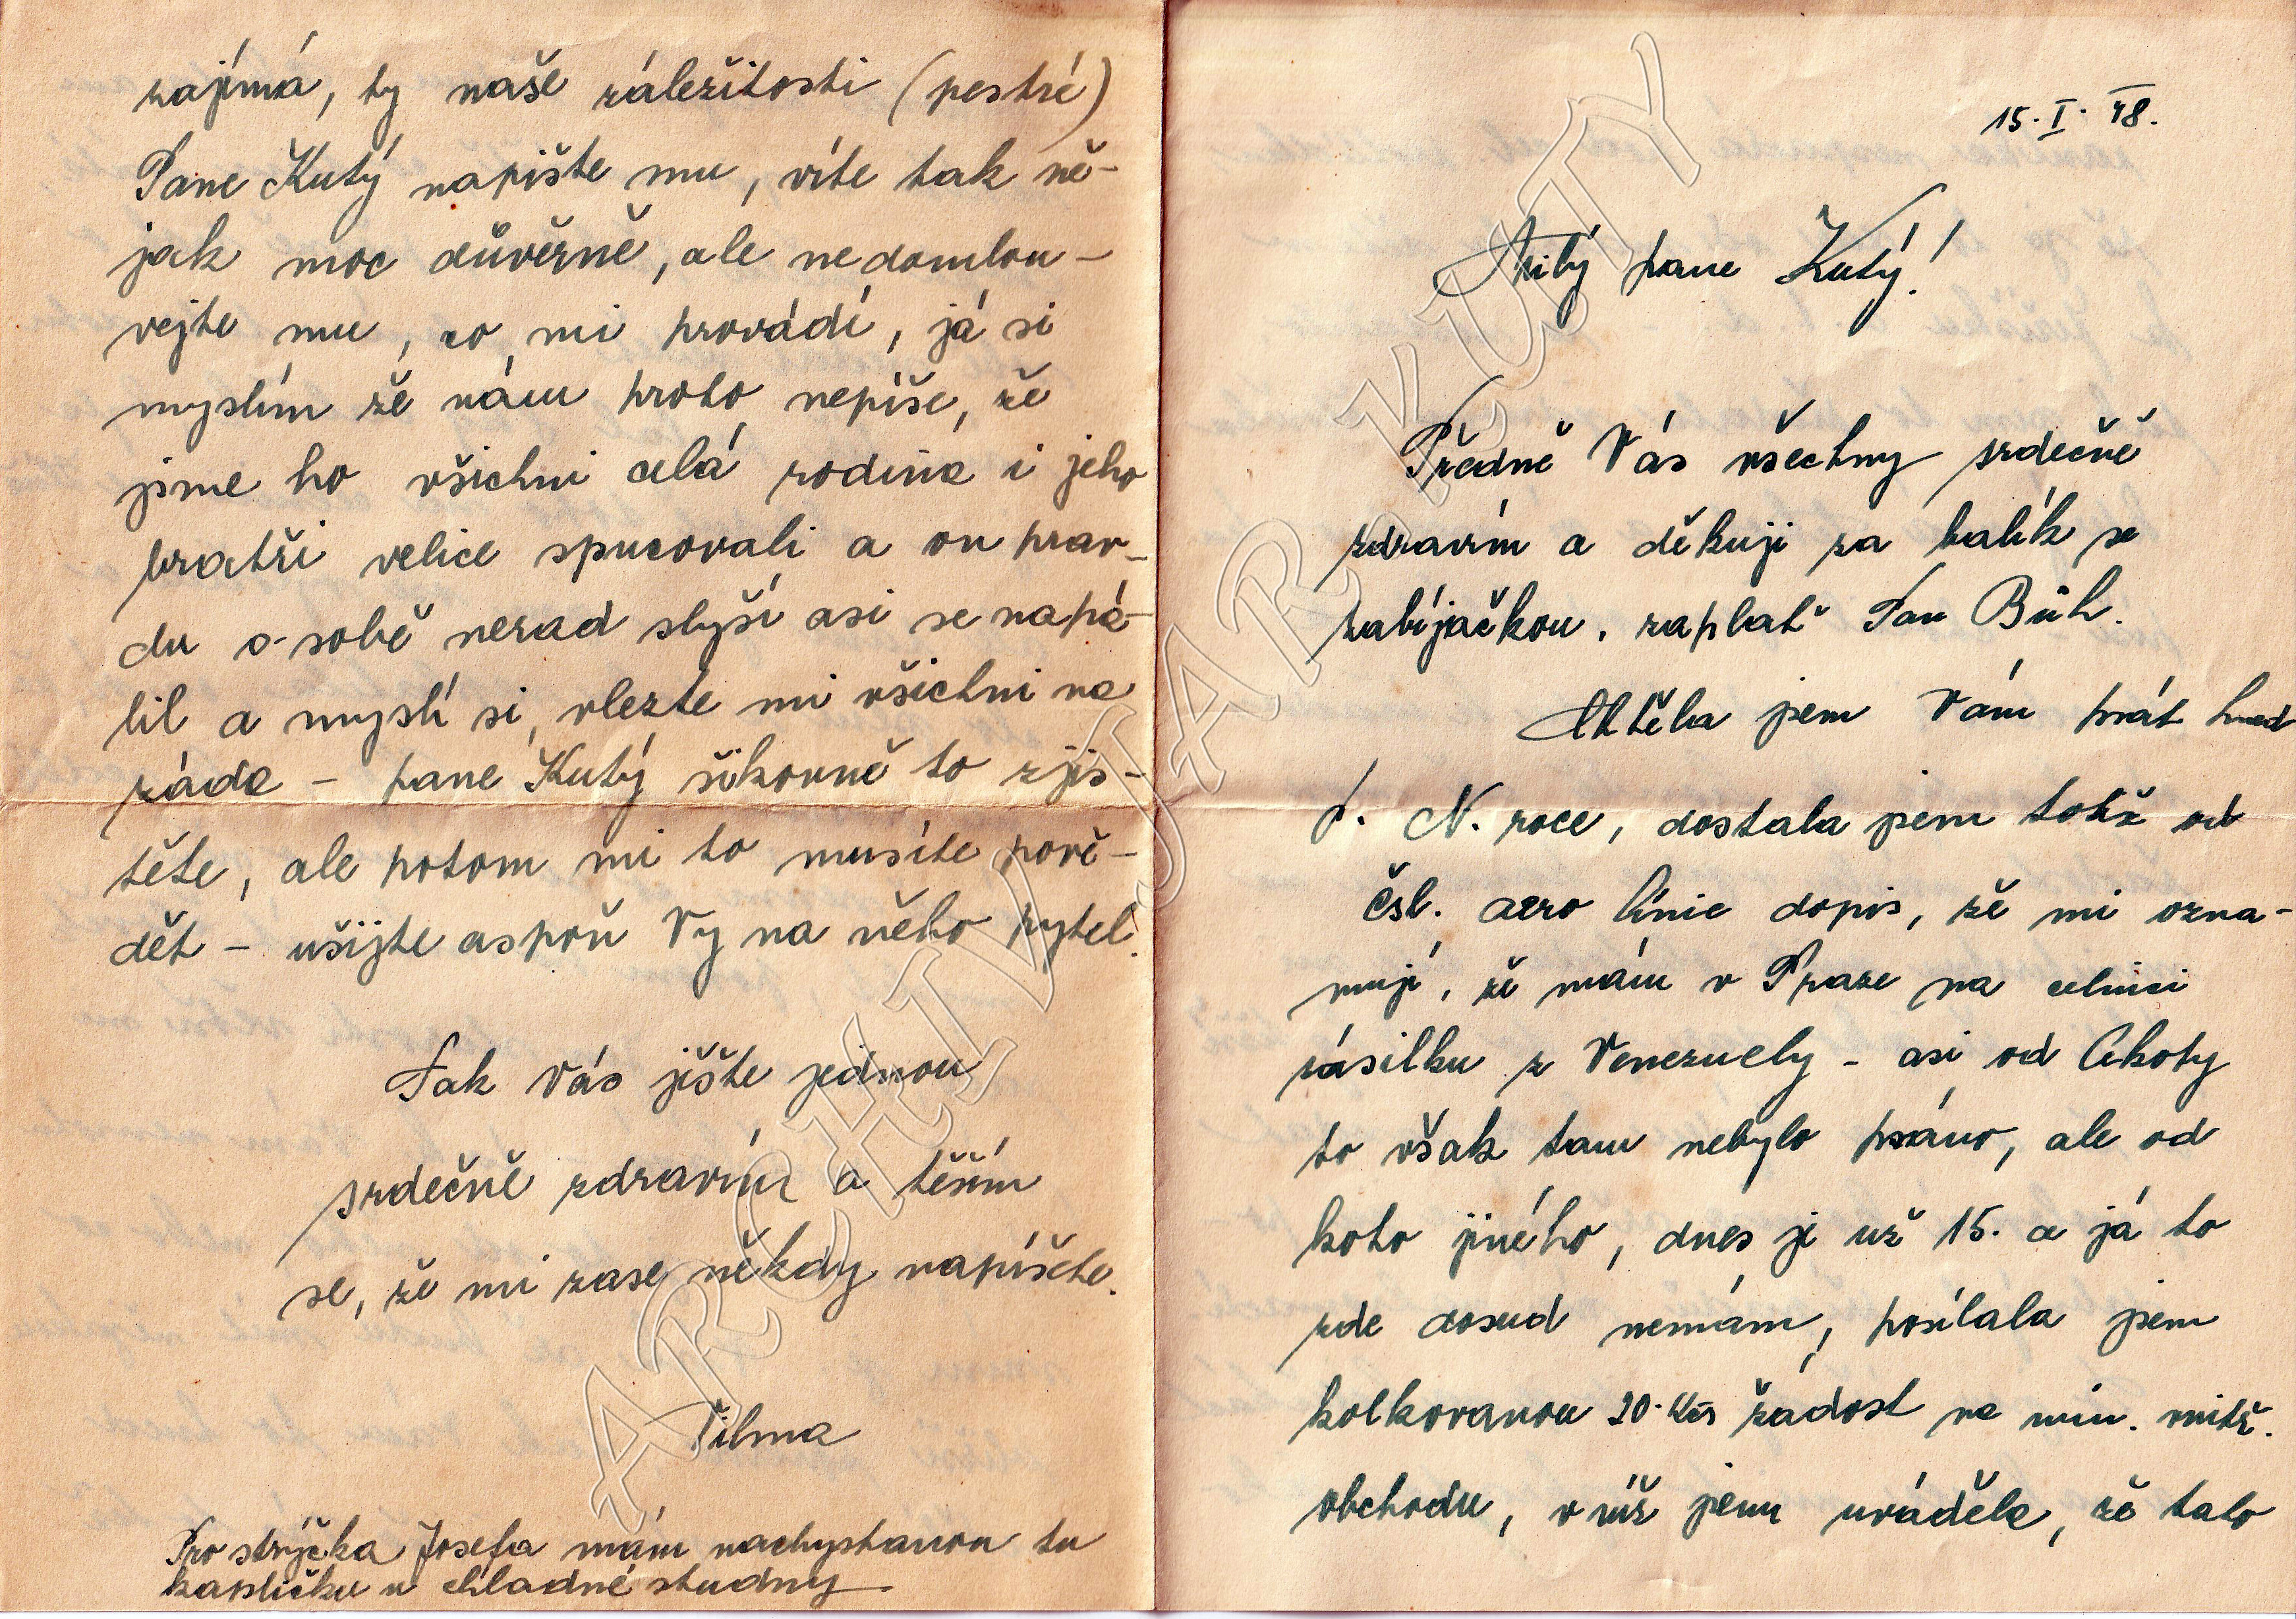 15. I. 48.
Milý pane Kutý!
Předně Vás všechny srdečně
zdravím a děkuji za balík se
zabíjačkou, zaplať Pan Bůh.
Chtěla jsem Vám psát hned
P. N. roce, dostala jsem totiž od
čsl. aero línie dopis, že mi ozna-
mují, že mám v Praze na celnici
zásilku z Venezuely - asi od Ckoty
to však tam nebylo psáno, ale od
koho jiného, dnes je už 15. a já to
zde dosud nemám, posílala jsem
kolkovanou 20 Kčs žádost na min. vnitř.
obchodu, v níž jsem uváděla, že tato
zajímá, ty naše záležitosti (pestré)
Pane Kutý napište mu, víte tak ně-
jak moc důvěrně, ale nedomlou-
vejte mu, co mi provádí, já si
myslím že nám proto nepíše, že
jsme ho všichni celá rodina i jeho
bratři velice spucovali a on prav-
du o sobě nerad slyší asi se napá-
lil a myslí si, vlezte mi všichni na
záda - pane Kutý šikovně to zjis-
těte, ale potom mi to musíte pově-
dět - ušijte aspoň Vy na něho pytel.
Tak Vás ještě jednou
srdečně zdravím a těším
se, že mi zase někdy napíšete.
Vilma
Pro strýčka Josefa mám nachystanou tu
kapličku u chladné studny
ARCHIV JAR. KUTÝ